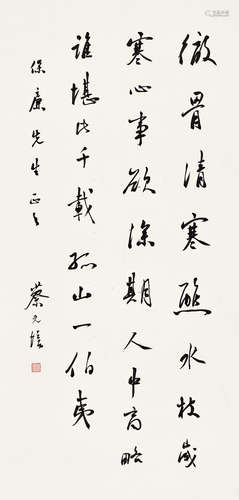 徹骨清寒醮水枝歲
寒心事欲深期人中高略
誰堪比千載孤山一伯夷
保廉先生正之
蔡元培